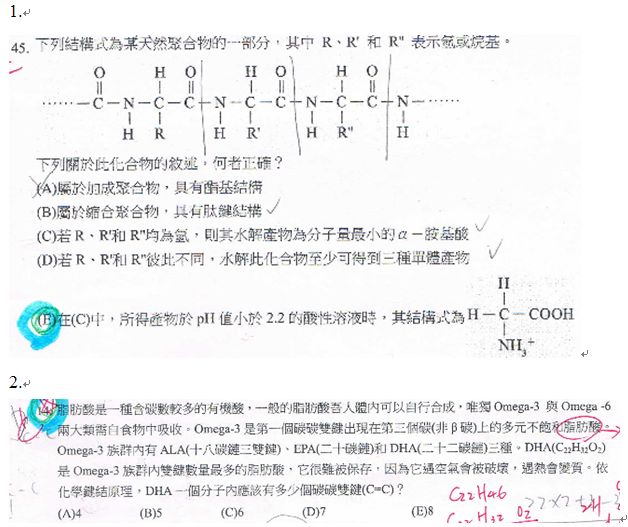 1.
45. 下列結構式為某天然聚合物的一部分，其中 R、R' 和 R" 表示氫或烷基。
O H O H O H O
…… C－N－C－C－N－C－C－N－C－C－N ……
H R H R' H R" H
下列關於此化合物的敘述，何者正確？
(A)屬於加成聚合物，具有酯基結構
(B)屬於縮合聚合物，具有肽鍵結構
(C)若 R、R'和 R"均為氫，則其水解產物為分子量最小的 α－胺基酸
(D)若 R、R'和 R"彼此不同，水解此化合物至少可得到三種單體產物
H
(E)在(C)中，所得產物於 pH 值小於 2.2 的酸性溶液時，其結構式為 H－C－COOH
NH₃⁺
2.
14. 脂肪酸是一種含碳數較多的有機酸，一般的脂肪酸吾人體內可以自行合成，唯獨 Omega-3 與 Omega -6
兩大類需自食物中吸收。Omega-3 是第一個碳碳雙鍵出現在第三個碳(非 β 碳)上的多元不飽和脂肪酸。
Omega-3 族群內有 ALA(十八碳鏈三雙鍵)、EPA(二十碳鏈)和 DHA(二十二碳鏈)三種。DHA(C₂₂H₃₂O₂)
是 Omega-3 族群內雙鍵數量最多的脂肪酸，它很難被保存，因為它遇空氣會被破壞，遇熱會變質。依
化學鍵結原理，DHA 一個分子內應該有多少個碳碳雙鍵(C=C)？
C₂₂H₄₆
(A)4 (B)5 (C)6 (D)7 (E)8
C₂₂H₃₂ O₂